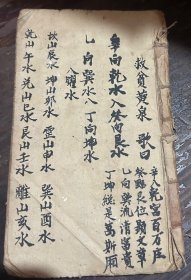 救貧黃泉 歌曰
辛入乾宮百万庄
癸歸艮位顯文章
乙向巽流清富貴
丁坤終是萬斯廂
辛向乾水 癸向艮水
乙向巽水 丁向坤水
八曜水
坎山辰水 坤山卯水 震山申水 巽山酉水
乾山午水 兌山巳水 艮山 離山亥水